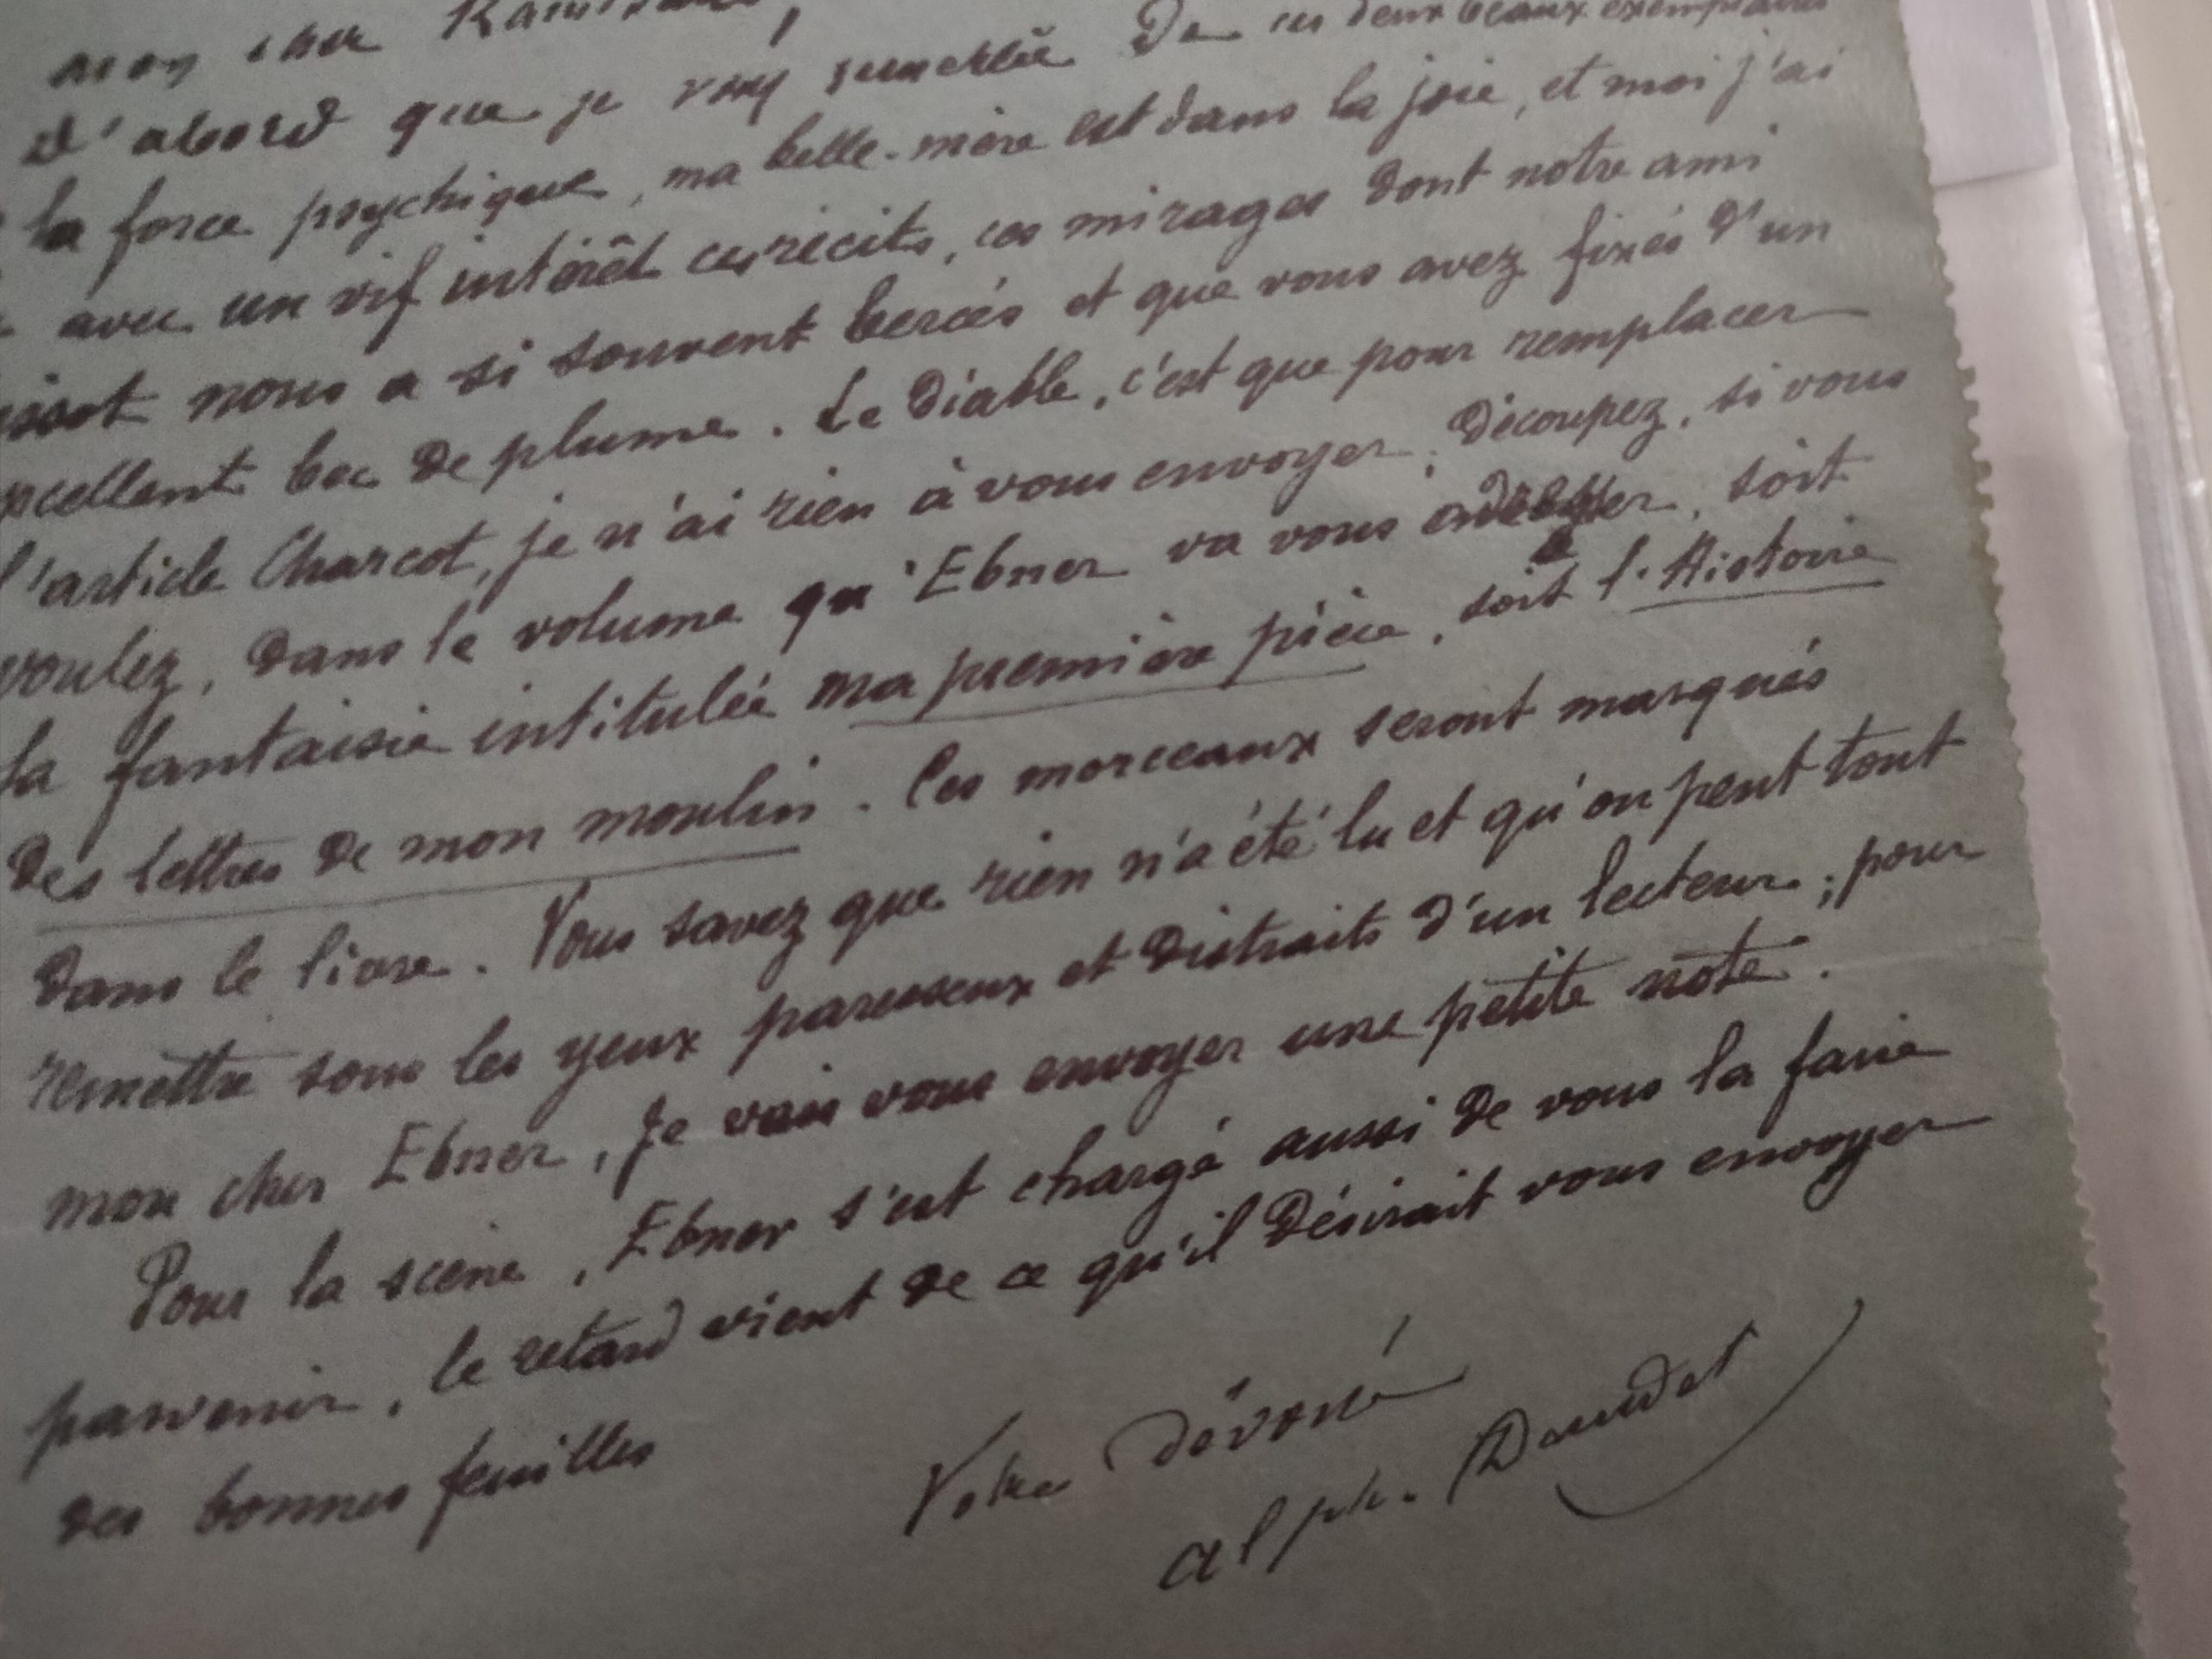 mon cher
D'abord que je vous remercie De ces deux beaux exemplaires
la force psychique, ma belle-mère est dans la joie, et moi j'ai
avec un vif intérêt ces récits, ces mirages dont notre ami
nous a si souvent bercés et que vous avez fixés d'un
excellent bec de plume. Le Diable, c'est que pour remplacer
l'article Charcot, je n'ai rien à vous envoyer; Découpez, si vous
voulez, dans le volume qu'Ebner va vous adresser, soit
la fantaisie intitulée ma première pièce, soit l'Histoire
Des lettres de mon moulin. Ces morceaux seront marqués
Dans le livre. Vous savez que rien n'a été lu et qu'on peut tout
remettre sous les yeux paresseux et distraits d'un lecteur; pour
mon cher Ebner, je vais vous envoyer une petite note.
Pour la scène, Ebner s'est chargé aussi de vous la faire
parvenir, le retard vient de ce qu'il désirait vous envoyer
des bonnes feuilles
Votre Dévoué
Alph. Daudet